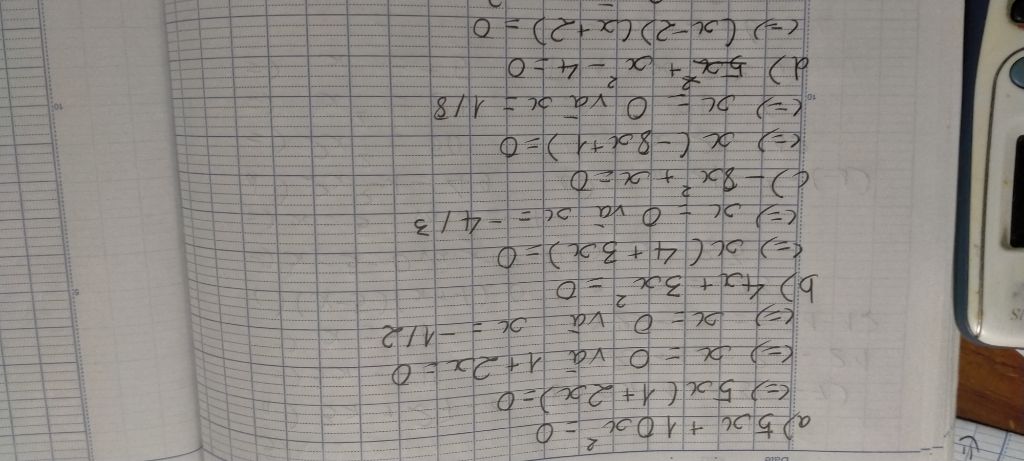 Date
a) 5x + 10x² = 0
<=> 5x (1 + 2x) = 0
<=> x = 0 và 1 + 2x = 0
<=> x = 0 và x = -1/2
b) 4x + 3x² = 0
<=> x (4 + 3x) = 0
<=> x = 0 và x = -4/3
c) -8x² + x = 0
<=> x (-8x + 1) = 0
<=> x = 0 và x = 1/8
d) x² - 4 = 0
<=> (x-2) (x+2) = 0